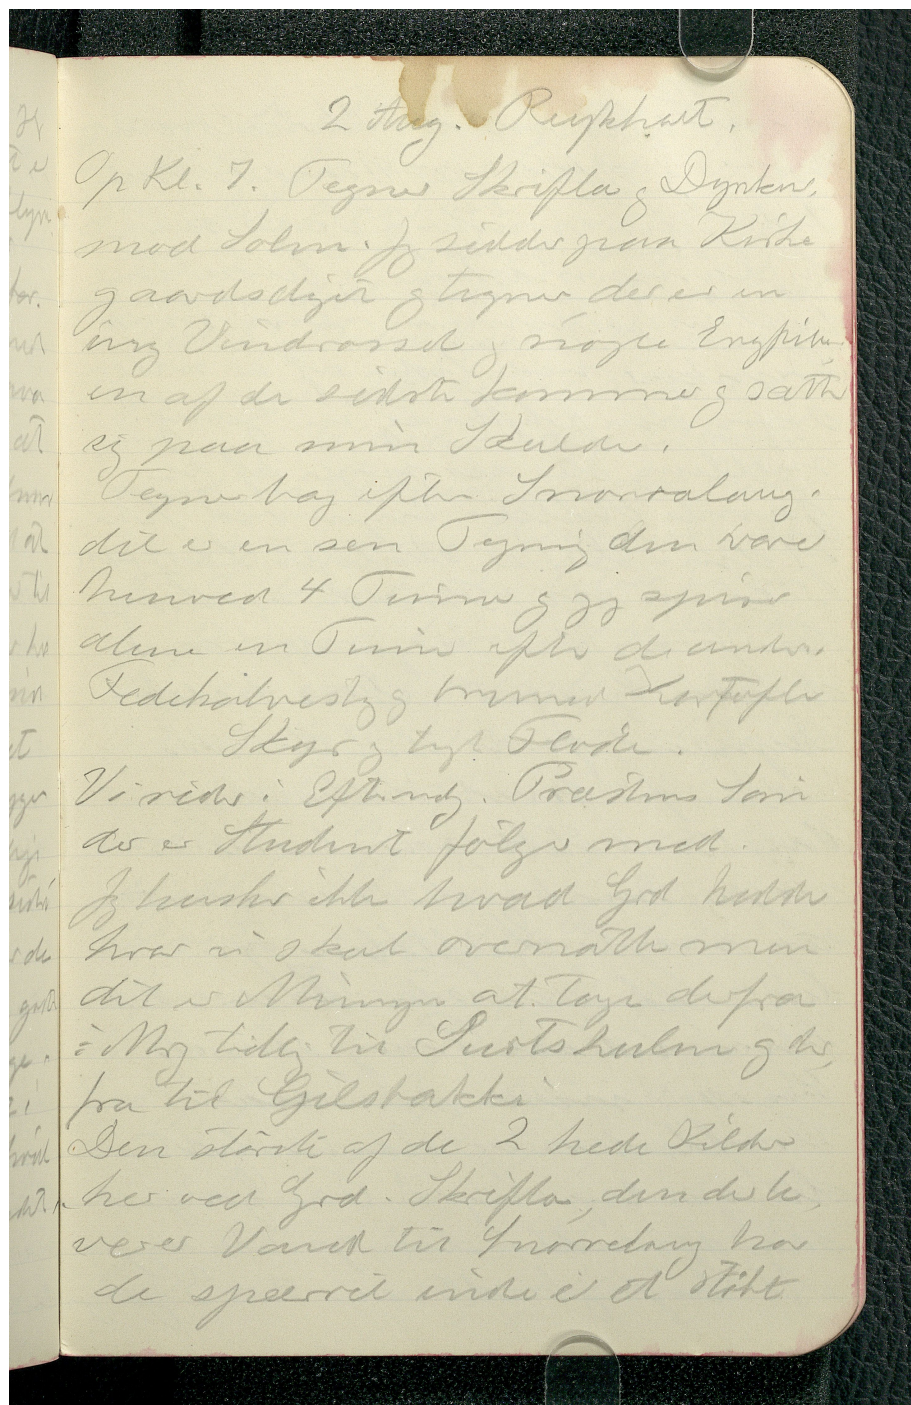 2 Aug. Reykholt.
Op Kl. 7. Tegner Skrifla g Dynker,
mod Solen. Jg sidder paa Kirke
gaardsdiget g tegner der er en
ung Vindrossel g nogle Engpiber
en af de sidste kommer g sætter
sig paa min Skulder.
Tegner bag efter Snorralaug.
det er en sen Tegning den varer
henved 4 Timer g jg spiser
alene en Time efter de andre.
Fedekalvesteg g brunede Kartofler
Skyr g tyk Fløde.
Vi rider i Eftermdg. Præstens Søn
der er Student følger med.
Jg husker ikke hvad Grd hedder
hvor vi skal overnatte men
det er Meningen at tage derfra
i Mrg tidlig til Surtshulen g der,
fra til Gilsbakki
Den største af de 2 hede Kilder
her ved Grd. Skrifla, den der le,
verer Vand til Snorrelaug har
de spærret inde i et støbt